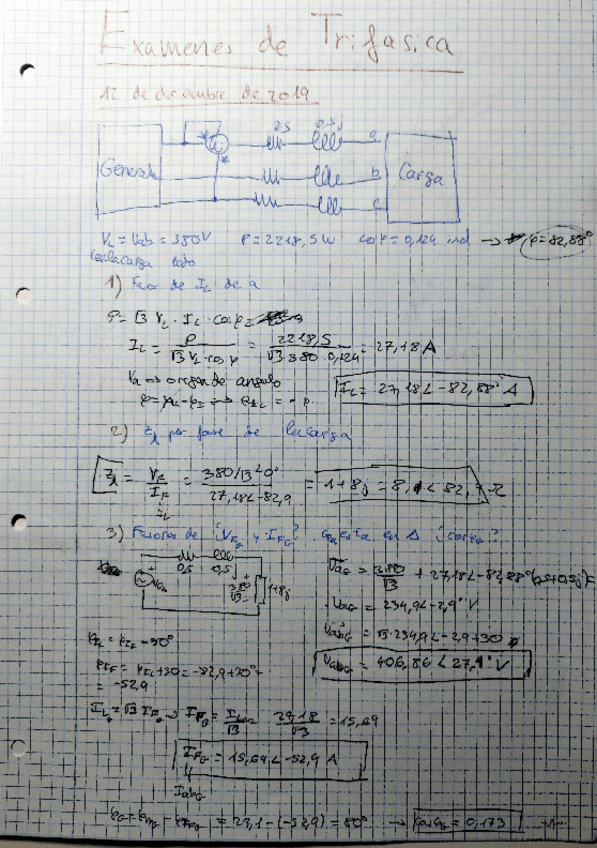 Examenes de Trifasica
12 de diciembre de 2019
0,5 0,5j a
Generador b Carga
c
VL = Vab = 380V P = 2218,5W cosφ = 0,124 ind → φ=82,88°
en la carga todo
1) Fasor de IL de a
P = √3 VL · IL · cosφ =
IL = P / √3 VL·cosφ = 2218,5 / √3·380·0,124 = 27,18 A
Va → origen de angulo
IL = 27,18∠-82,88° A
2) Zλ por fase de la carga
Zλ = VF / IF = 380/√3∠0° / 27,18∠-82,9 = 1+8j =
IL
3) Fasores de VFG y IFG
0,5 0,5j 380/√3 1+8j
VaG = 380/√3 + 27,18∠-82,88°(0,5+0,5j) =
VaG = 234,9∠-2,9° V
VabG = √3·234,9∠-2,9+30
VabG = 406,86∠27,1° V
φIF = φIL+30 = -82,9+30° =
= -52,9
ILG = √3 IFG → IFG = IL/√3 = 27,18/√3 = 15,69
IFG = 15,69∠-52,9 A
IabG
= 27,1-(-52,9) = 80° → cosφG = 0,173